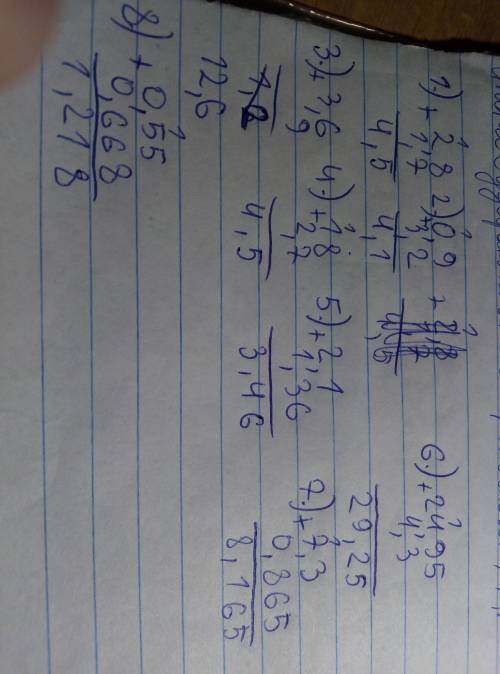 1.) + 2,8 2) 0,9 + 6.) + 24,95
1,7 + 3,2 4,3
4,5 4,1 4,5 29,25
3.) + 3,6 4.) + 1,8 5.) + 2,1 7.) + 7,3
9 2,7 1,36 0,865
12,6 4,5 3,46 8,165
8) + 0,55
0,668
1,218